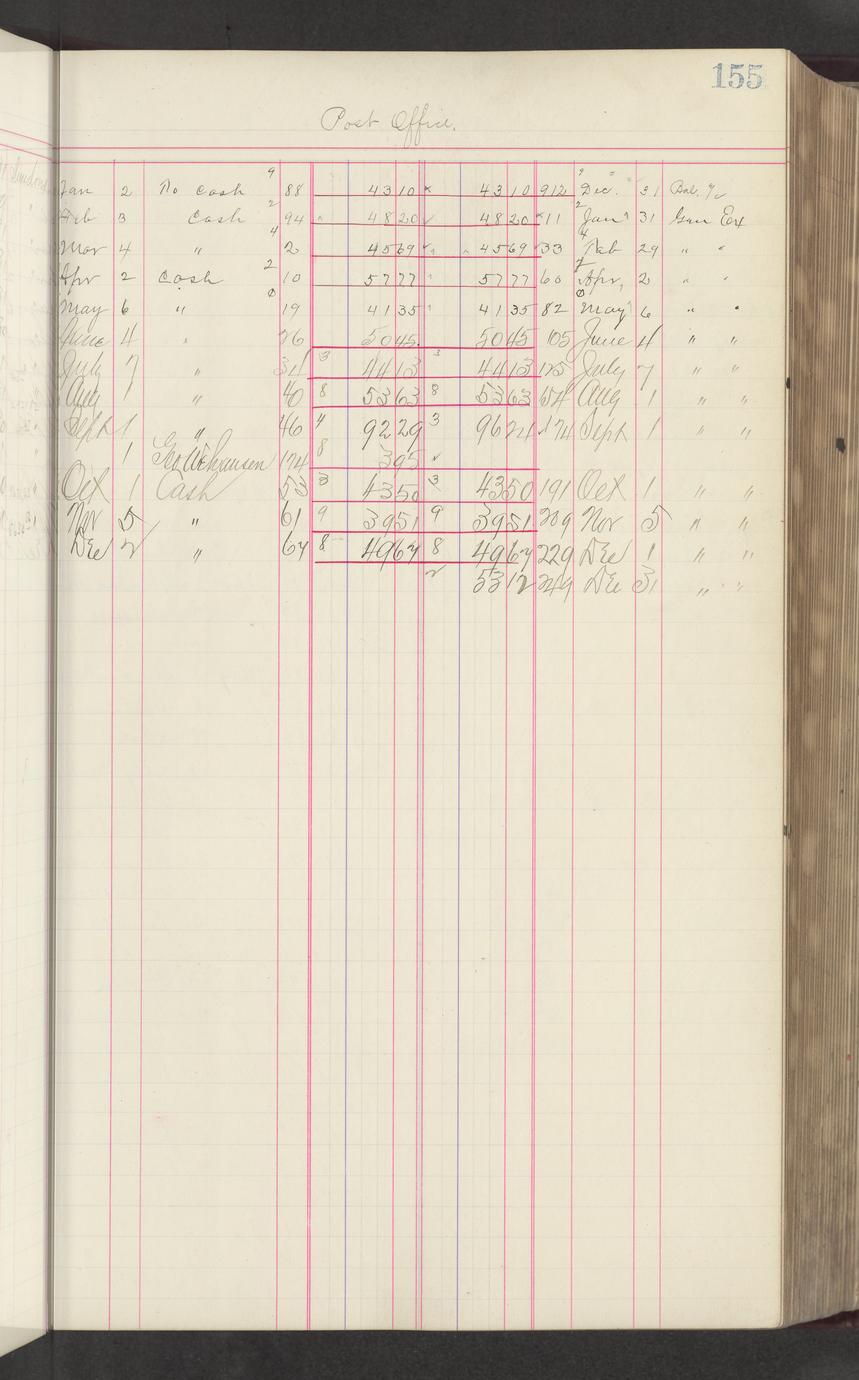 155
Post Office.
Jan 2 To cash 88 43 10 43 10 912 Dec. 31 Bal.
Feb 3 cash 94 48 20 48 20 11 Jan 31 Gen Ex
Mar 4 " 2 45 69 45 69 33 Feb 29 " "
Apr 2 cash 10 57 77 57 77 60 Apr, 2 " "
May 6 " 19 41 35 41 35 82 May 6 " "
June 4 " 26 50 45 50 45 105 June 4 " "
July 7 " 34 3 44 13 3 44 13 125 July 7 " "
Aug 1 " 40 8 53 63 8 53 63 154 Aug 1 " "
Sept 1 " 46 4 92 29 3 96 24 174 Sept 1 " "
1 174 8 3 95
Oct 1 Cash 53 3 43 50 3 43 50 191 Oct 1 " "
Nov 5 " 61 9 39 51 9 39 51 209 Nov 5 " "
Dec 2 " 67 8 49 67 8 49 67 229 Dec 1 " "
2 53 12 249 Dec 31 " "